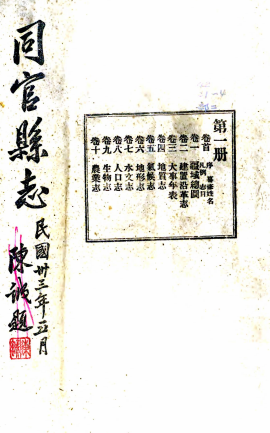 第一册
卷首
序 纂修姓名
凡例 志目
卷一 疆域總圖
卷二 建置沿革志
卷三 大事年表
卷四 地質志
卷五 氣候志
卷六 地形志
卷七 水文志
卷八 人口志
卷九 生物志
卷十 農業志
同官縣志
民國卅三年五月
陳誠題